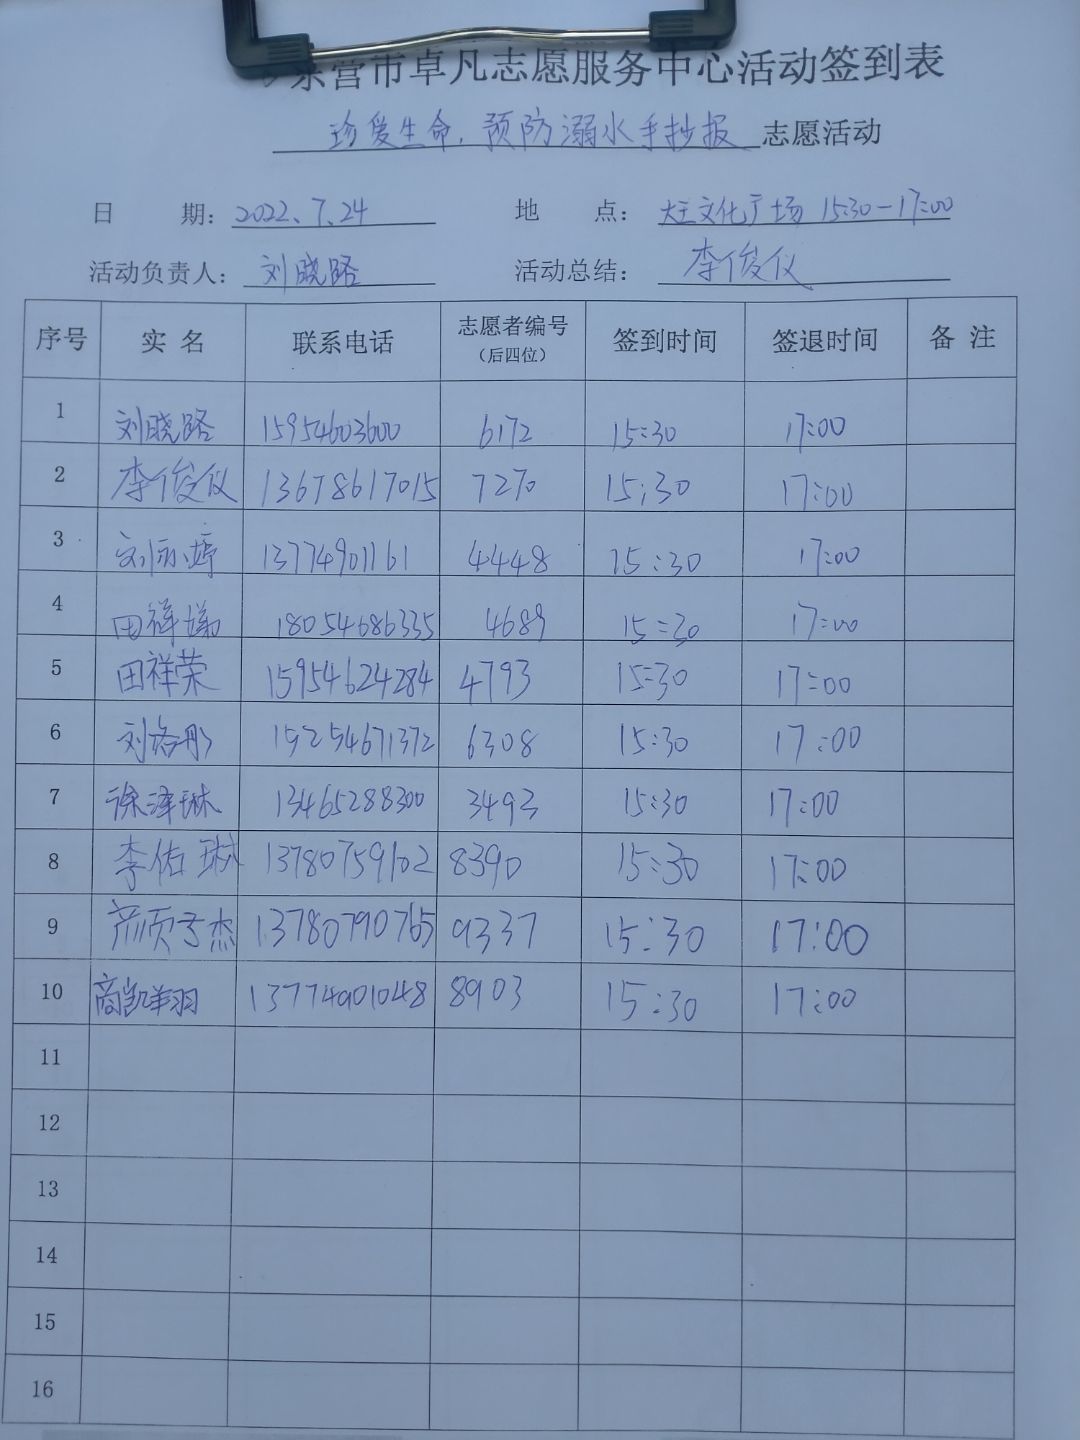 东营市卓凡志愿服务中心活动签到表
珍爱生命,预防溺水手抄报 志愿活动
日 期: 2022.7.24 地 点: 大王文化广场 15:30-17:00
活动负责人: 刘晓路 活动总结: 李俊仪
序号 实 名 联系电话 志愿者编号(后四位) 签到时间 签退时间 备 注
1 刘晓路 15954603600 6172 15:30 17:00
2 李俊仪 13678617015 7270 15:30 17:00
3 13774901161 4448 15:30 17:00
4 田祥娣 18054686335 4689 15:30 17:00
5 田祥荣 15954624284 4793 15:30 17:00
6 刘洛彤 15254671372 6308 15:30 17:00
7 徐泽琳 13465288300 3493 15:30 17:00
8 李佑琳 13780759102 8390 15:30 17:00
9 颜子杰 13780790765 9337 15:30 17:00
10 商凯翔 13774901048 8903 15:30 17:00
11
12
13
14
15
16